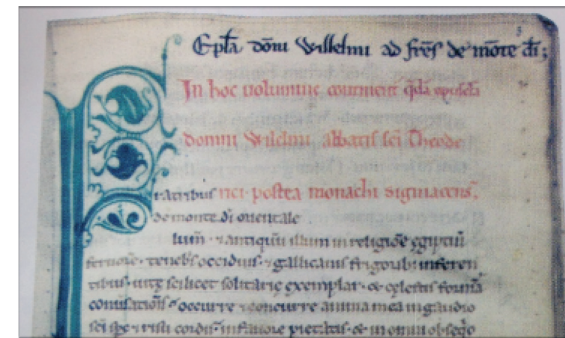 Epła dōni Willelmi ad fr̄es de mōte d̄i;
In hoc uolumine continent᷑ q̄dā opuscła
domni Willelmi abbatis sc̄i Theode
ratribus rici · postea monachi signiacens̄.
de monte d̄i orientale
lum̄ · ⁊ antiquū illum in religiōe egiptiū
feruorē · tenebris occiduis · ⁊ gallicanis frigorib; inferen
tibus · uitę scilicet solitarię exemplar · ⁊ cęlestis formā
conuersationis · occurre ⁊ concurre anima mea in gaudio
sc̄i sp̄c ⁊ risu cordis · in fauore pietatis · ⁊ in omni obseq̄o